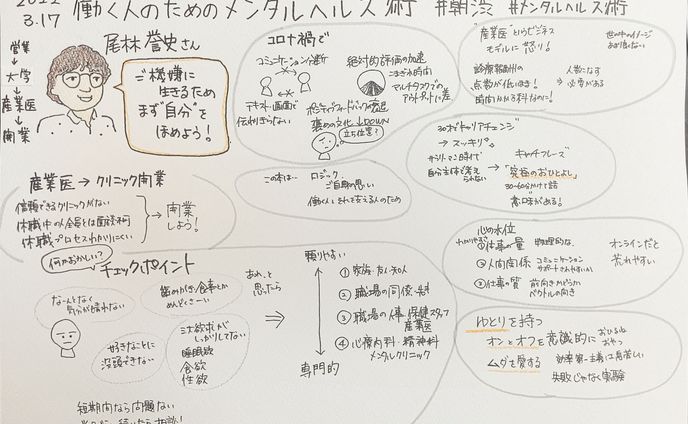 3.17
働く人のためのメンタルヘルス術 #朝渋 #メンタルヘルス術
尾林誉史さん
営業
→大学
↓
産業医
↓
開業
ご機嫌に
生きるため
まず"自分"を
ほめよう!
コロナ禍で
コミュニケーション分断
テキスト・画面で
伝わりきらない
絶対的評価の加速
こまぎれ時間
マルチタスクで
アウトプットに差
ポジティブフィードバックの衰退
褒めの文化↓DOWN
立ち位置?
"産業医"というビジネス
モデルに怒り!
診療報酬の
点数が低いまま!
時間かかる科なのに!
人数こなす
必要がある
30才でキャリアチェンジ
→スッキリ。
サラリーマン時代
自分主体で考え
られない
キャッチフレーズ
「究極のおひとよし」
30-60分かけて話
意味がある!
産業医→クリニック開業
信頼できるクリニックがない
休職中の全員とは面談不可
休職プロセスわかりにくい
開業
しよう!
この本は…
ロジック
ご自身の思い
働く人とそれを支える人のため
何かおかしい?
チェックポイント
なーんとなく
気分が晴れない
歯みがき、食事とか
めんどくさーい
好きなことに
没頭できない
三大欲求が
しっかりしてない
睡眠欲
食欲
性欲
短期間なら問題ない
あれ、と
思ったら
⇒
頼りやすい
①家族・友人・知人
②職場の同僚・上司
③職場の人事・保健スタッフ
産業医
④心療内科・精神科
メンタルクリニック
専門的
心の水位
わかりやすい
①仕事の量 物理的な
②人間関係 コミュニケーション
サポートされやすいか
③仕事の質 前向きかどうか
ベクトルの向き
オンラインだと
荒れやすい
ゆとりを持つ
オンとオフを意識的に
おひるね
おやつ
ムダを愛する
効率第一主義は息苦しい
失敗じゃなく実験